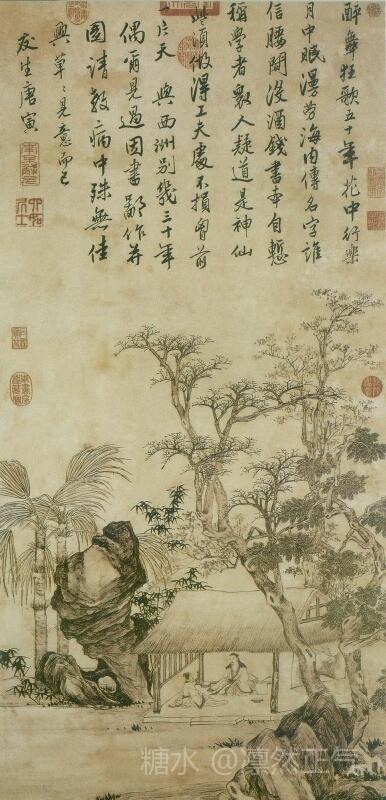 醉舞狂歌五十年花中行樂
月中眠漫勞海内傳名字誰
信腰間没酒錢書本自慙
稱學者衆人疑道是神仙
些須做得工夫處不損胷前
一片天 與西洲别幾三十年
偶爾見過因書鄙作并
圖請教病中殊無佳
興草〻見意而已
友生唐寅
南京解元
六如居士
糖水 @凛然正气